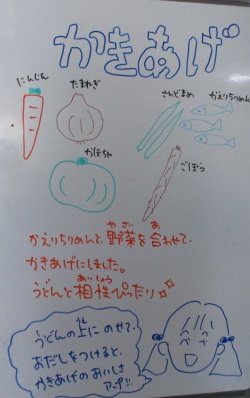 かきあげ
にんじん
たまねぎ
さんどまめ
かえりちりめん
かぼちゃ
ごぼう
かえりちりめんと、野菜を合わせて、
やさい あ
かきあげにしました。
うどんと相性ぴったり
あいしょう
うどんの上にのせて、
うえ
おだしをつけると、
かきあげのおいしさ
アップ!!